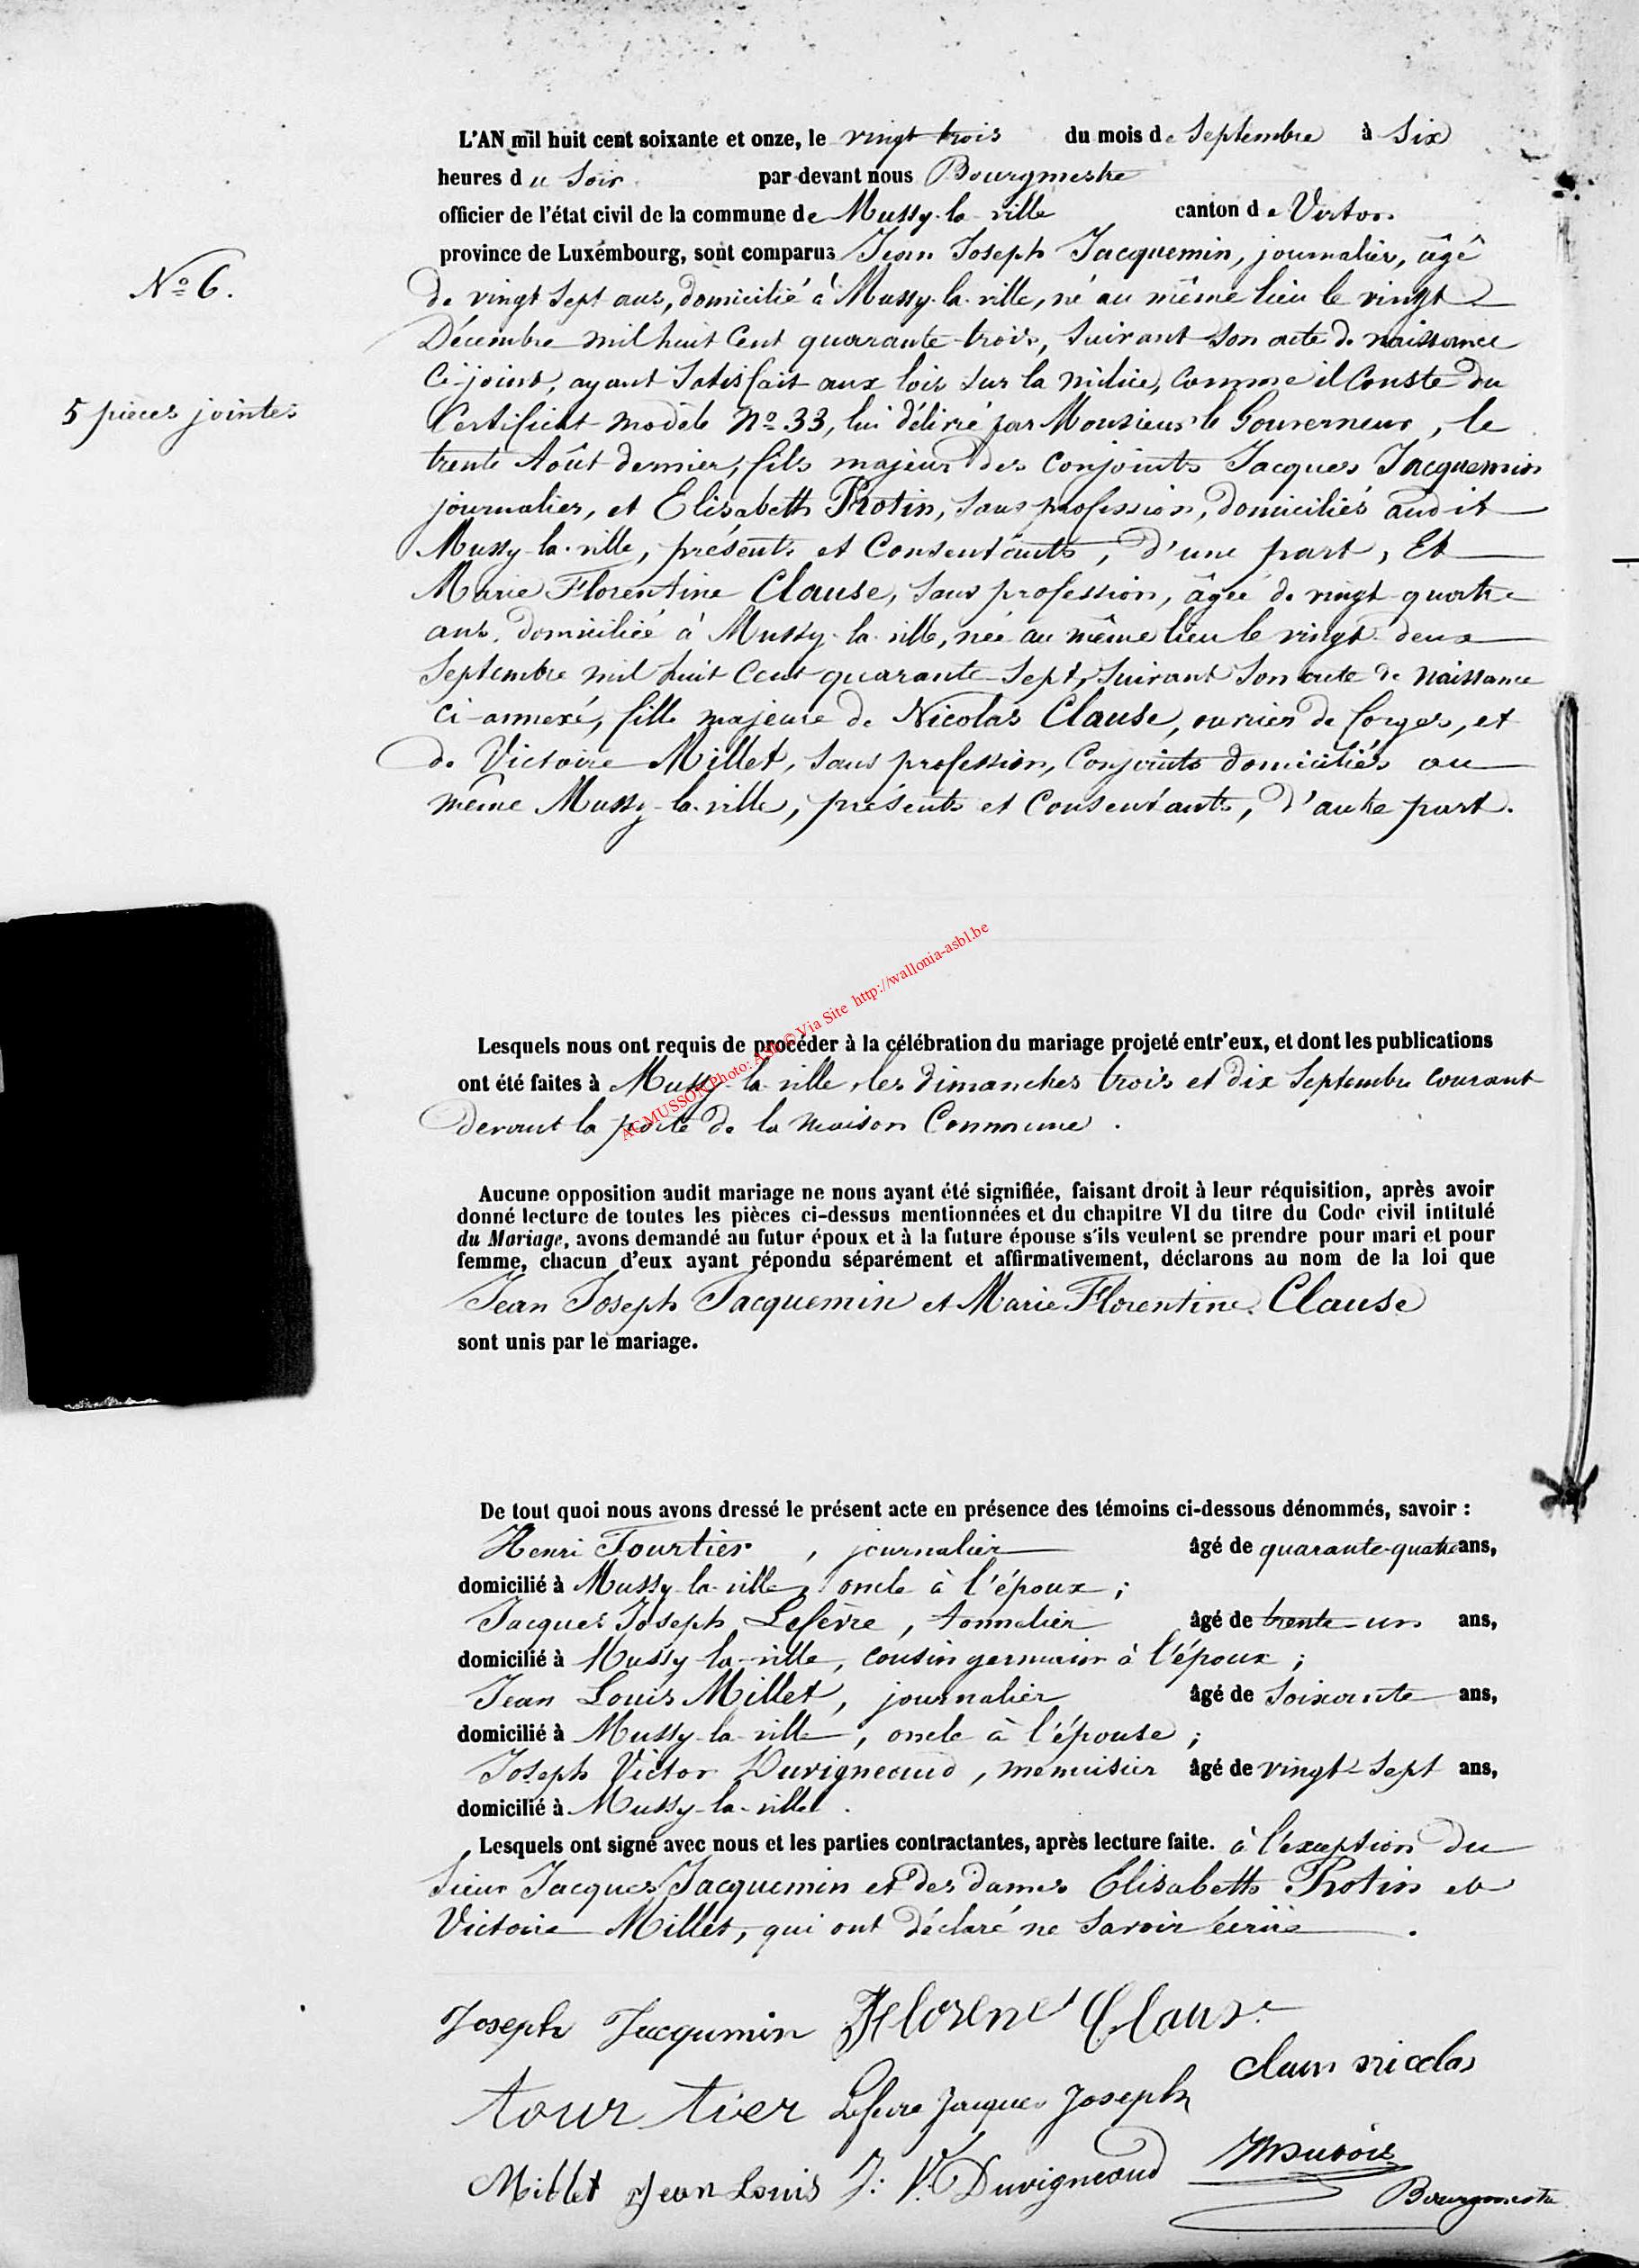 L'AN mil huit cent soixante et onze, le vingt trois du mois de Septembre à Six
heures du Soir par-devant nous Bourgmestre
officier de l'état civil de la commune de Mussy-la-ville canton de Virton
province de Luxembourg, sont comparus Jean Joseph Jacquemin, journalier, âgé
N° 6.
de vingt Sept ans, domicilié à Mussy-la-ville, né au même lieu le vingt
Décembre mil huit Cent quarante-trois, Suivant Son acte de naissance
Ci-joint, ayant Satisfait aux lois Sur la milice, Comme il Conste du
5 pièces jointes
Certificat modèle N° 33, lui délivré par Monsieur le Gouverneur, le
trente Août dernier, fils majeur des Conjoints Jacques Jacquemin
journalier, et Elisabeth Rotin, Sans profession, domiciliés audit
Mussy-la-ville, présents et Consentants, d'une part, Et
Marie Florentine Clause, Sans profession, âgée de vingt-quatre
ans, domiciliée à Mussy-la-ville, née au même lieu le vingt-deux
Septembre mil huit Cent quarante-Sept, Suivant Son acte de Naissance
Ci-annexé, fille majeure de Nicolas Clause, ouvrier de forges, et
de Victoire Millet, Sans profession, Conjoints domiciliés au
même Mussy-la-ville, présents et Consentants, d'autre part.
ACMUSSON Photo: © Via Site http://wallonia-asbl.be
Lesquels nous ont requis de procéder à la célébration du mariage projeté entr'eux, et dont les publications
ont été faites à Mussy-la-ville, les dimanches trois et dix Septembre courant
devant la porte de la maison Commune.
Aucune opposition audit mariage ne nous ayant été signifiée, faisant droit à leur réquisition, après avoir
donné lecture de toutes les pièces ci-dessus mentionnées et du chapitre VI du titre du Code civil intitulé
du Mariage, avons demandé au futur époux et à la future épouse s'ils veulent se prendre pour mari et pour
femme, chacun d'eux ayant répondu séparément et affirmativement, déclarons au nom de la loi que
Jean Joseph Jacquemin et Marie Florentine Clause
sont unis par le mariage.
De tout quoi nous avons dressé le présent acte en présence des témoins ci-dessous dénommés, savoir :
Henri Tourtier, journalier âgé de quarante-quatre ans,
domicilié à Mussy-la-ville, oncle à l'époux ;
Jacques Joseph Lefèvre, tonnelier âgé de trente-un ans,
domicilié à Mussy-la-ville, cousin germain à l'époux ;
Jean Louis Millet, journalier âgé de Soixante ans,
domicilié à Mussy-la-ville, oncle à l'épouse ;
Joseph Victor Duvigneaud, menuisier âgé de vingt-Sept ans,
domicilié à Mussy-la-ville.
Lesquels ont signé avec nous et les parties contractantes, après lecture faite. à l'exception du
Sieur Jacques Jacquemin et des dames Elisabeth Rotin et
Victoire Millet, qui ont déclaré ne Savoir écrire.
Joseph Jacqumin Florene Clause
Claus nicolas
tour tier Lefevre Jacques Joseph
Millet Jean Louis J. V. Duvigneaud
Bourgmestre